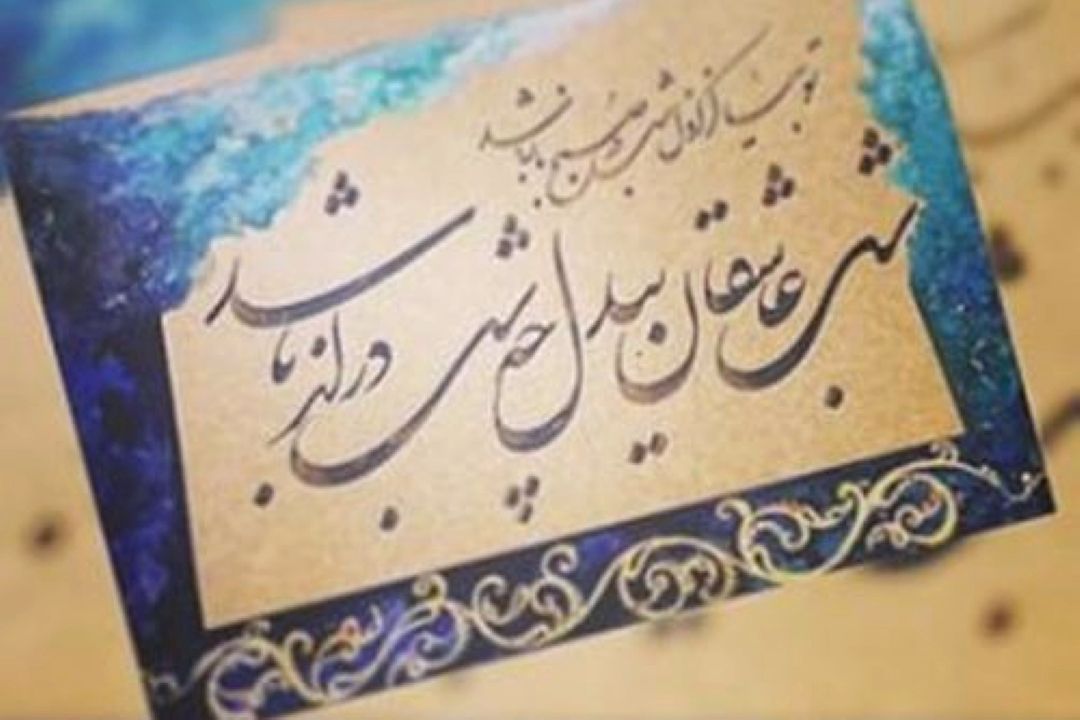 تو بیا کز اول شب در صبح باز باشد
شب عاشقان بیدل چه شب دراز باشد